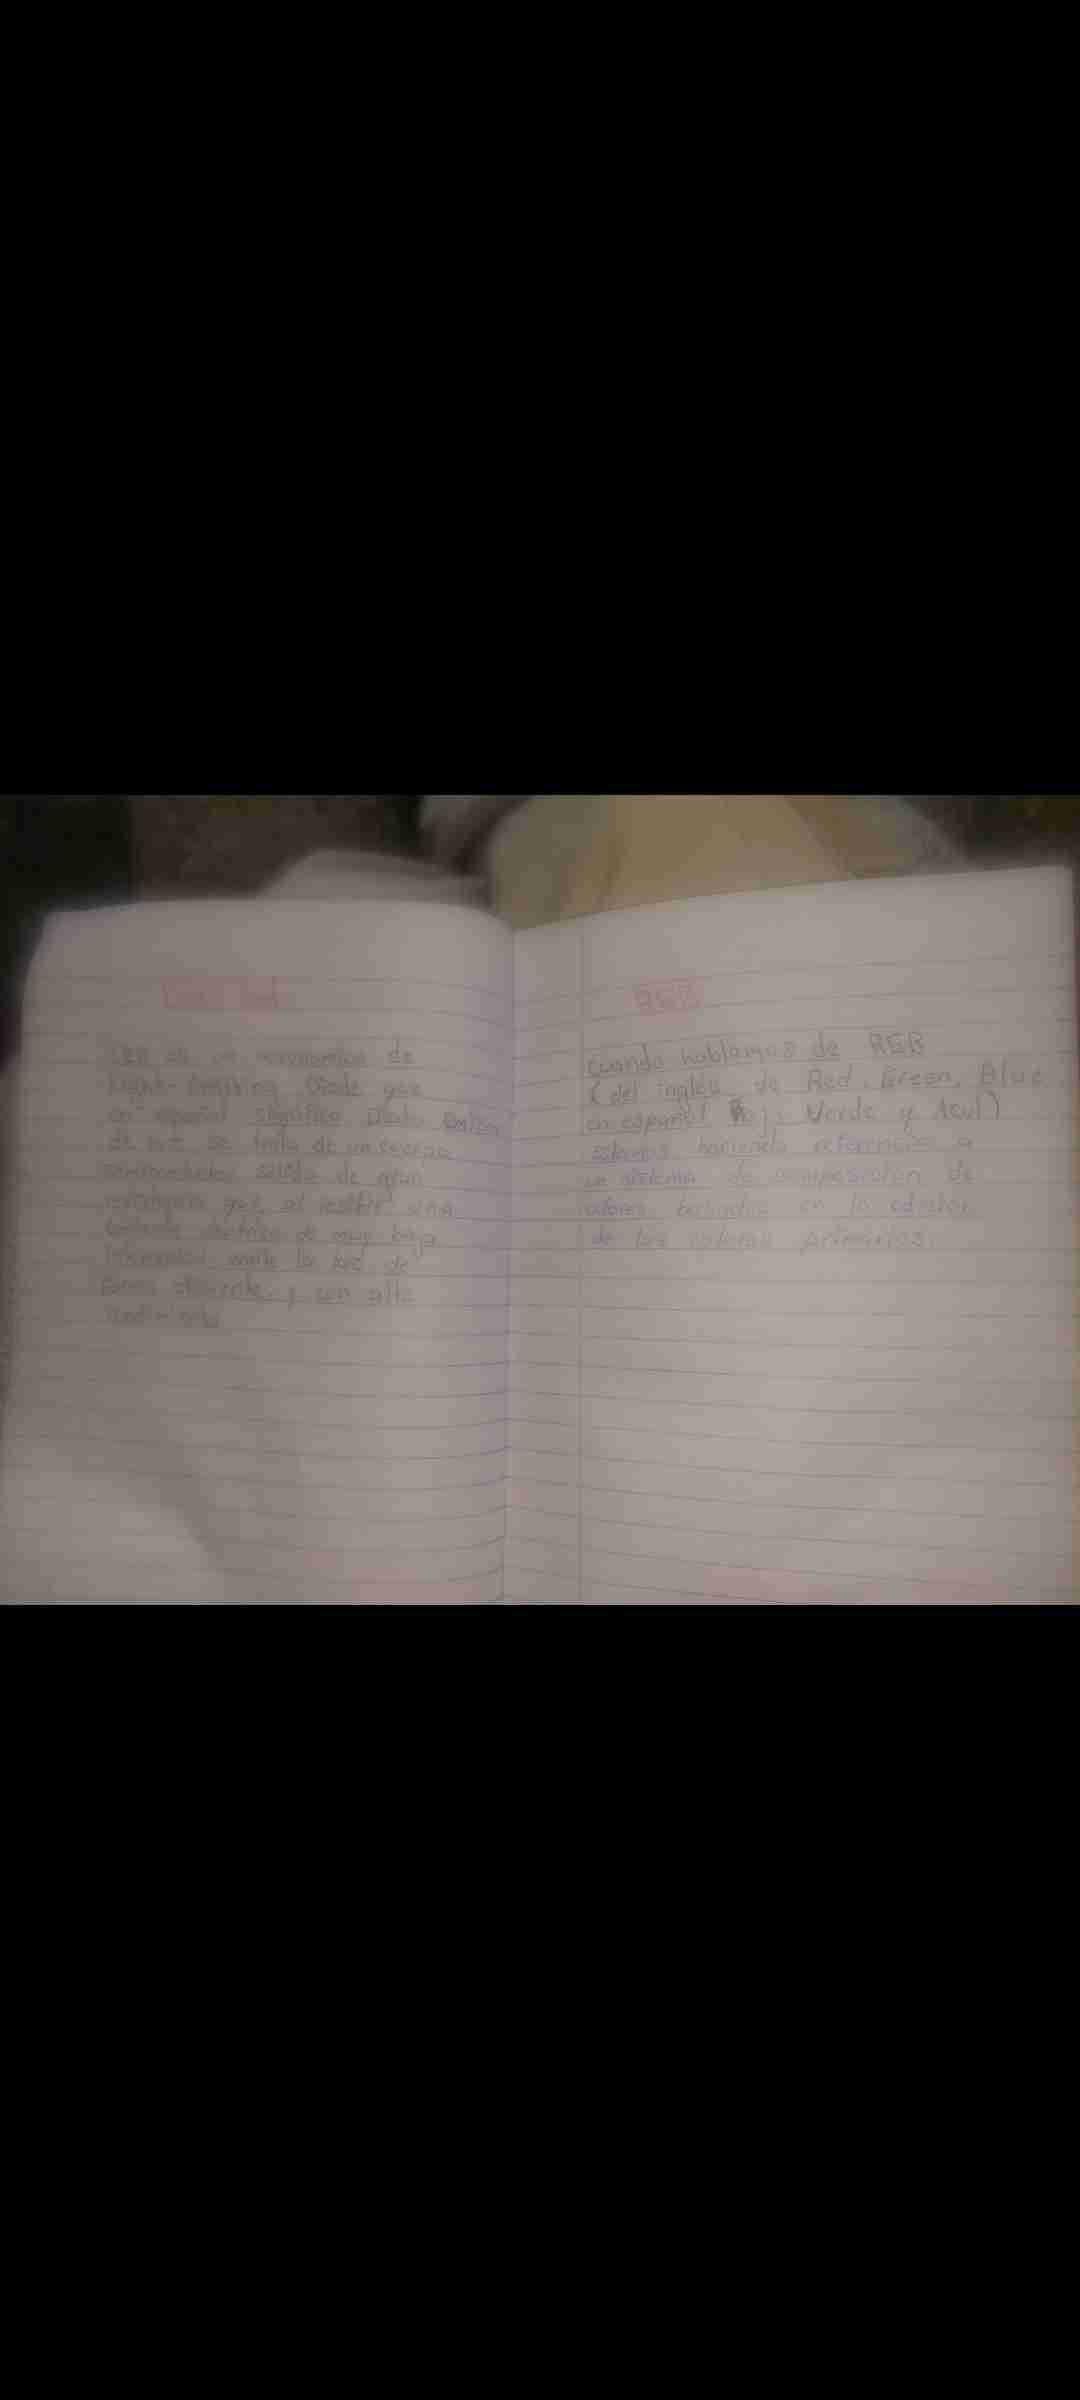 LED es un acronimo de
Light-Emitting Diode que
en español significa Diodo Emisor
de luz se trata de un cuerpo
semiconductor solido de gran
que, al recibir una
corriente electrica de muy baja
intensidad emite la luz de
forma eficiente y con alto
RGB
cuando hablamos de RGB
(del inglés de Red, Green, Blue
en español Roj. Verde y Azul)
estamos haciendo referencia a
un sistema de composición de
colores basados en la adición
de los colores primarios.